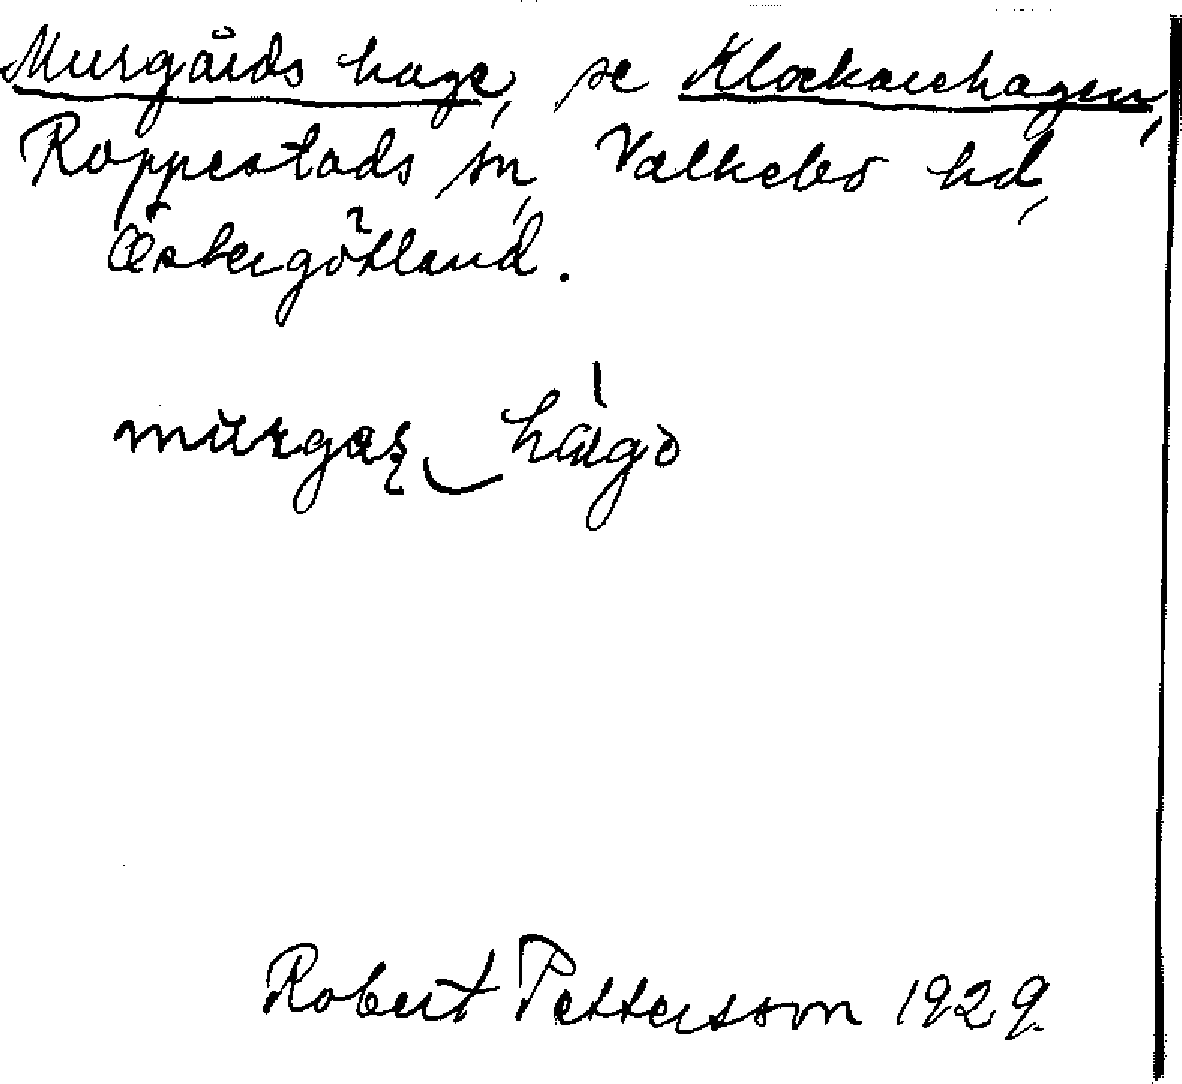 Murgårds hage, se Klockarehagen,
Rappestads sn, Valkebo hd,
Östergötland.
Robert Pettersson 1929.